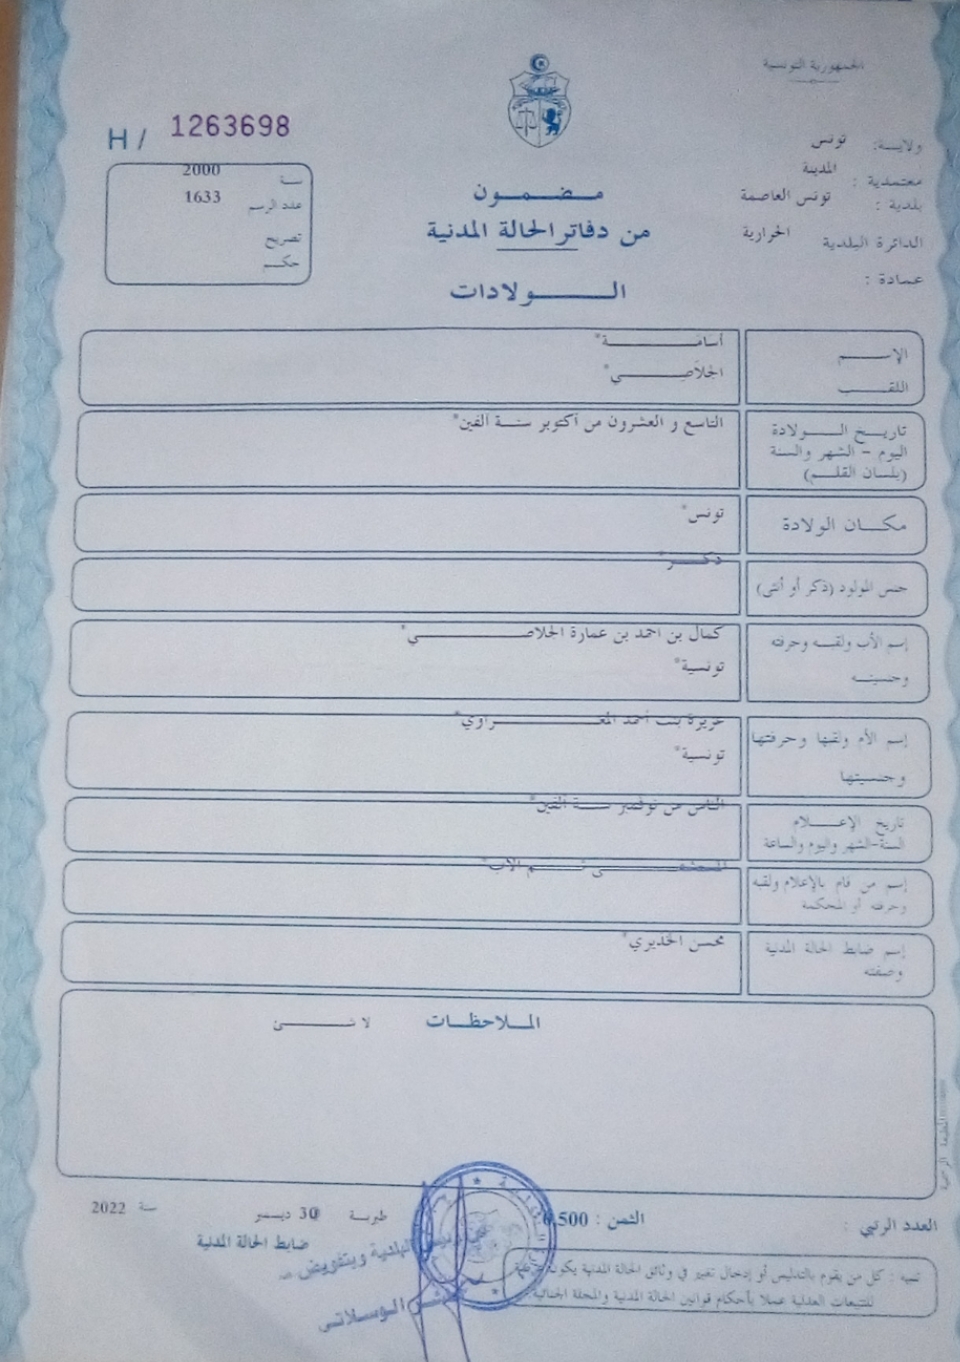 الجمهورية التونسية
H / 1263698
ولايـــة: تونس
معتمدية : المدينة
بلدية : تونس العاصمة
الدائرة البلدية الحرارية
عمادة :
سنة 2000
عدد الرسم 1633
تصريح
حكم
مضمون
من دفاتر الحالة المدنية
الـــولادات
الإســـم أسامـــة*
اللقـــب الجلاصـــي*
تاريـــخ الـــولادة التاسع و العشرون من أكتوبر سنة ألفين*
اليوم - الشهر والسنة
(بلسان القلم)
مكـــان الولادة تونس*
جنس المولود (ذكر أو أنثى) ذكـــر*
إسم الأب ولقبه وحرفته كمال بن احمد بن عمارة الجلاصـــي*
وجنسيته تونسية*
إسم الأم ولقبها وحرفتها بنت أحمد المعـــراوي*
وجنسيتها تونسية*
تاريخ الإعـــلام الثامن من نوفمبر سنة ألفين*
السنة-الشهر واليوم والساعة
إسم من قام بالإعلام ولقبه الأب*
وحرفته أو المحكمة
إسم ضابط الحالة المدنية محسن الخديري*
وصفته
الملاحظات لا شـــئ
المطبعة الرسمية
العدد الرتبي :
الثمن : 0,500
طبربة 30 ديسمبر سنة 2022
ضابط الحالة المدنية
البلدية وبتفويض
الوسلاتي
تنبيه : كل من يقوم بالتدليس أو إدخال تغيير في وثائق الحالة المدنية يكون
للتتبعات العدلية عملا بأحكام قوانين الحالة المدنية والمجلة الجنائية.